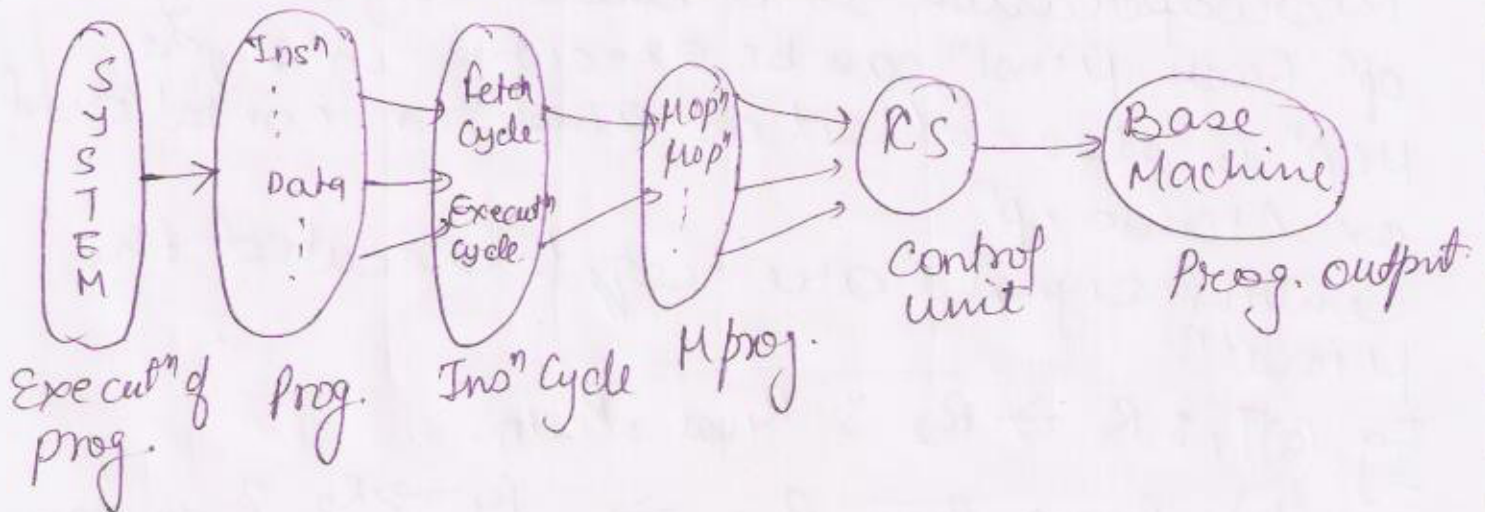 SYSTEM
Execut^n of
prog.
Ins^n
Data
Prog.
Fetch
Cycle
Execut^n
cycle
Ins^n Cycle
μop^n
μop^n
μ prog.
CS
Control
unit
Base
Machine
Prog. output